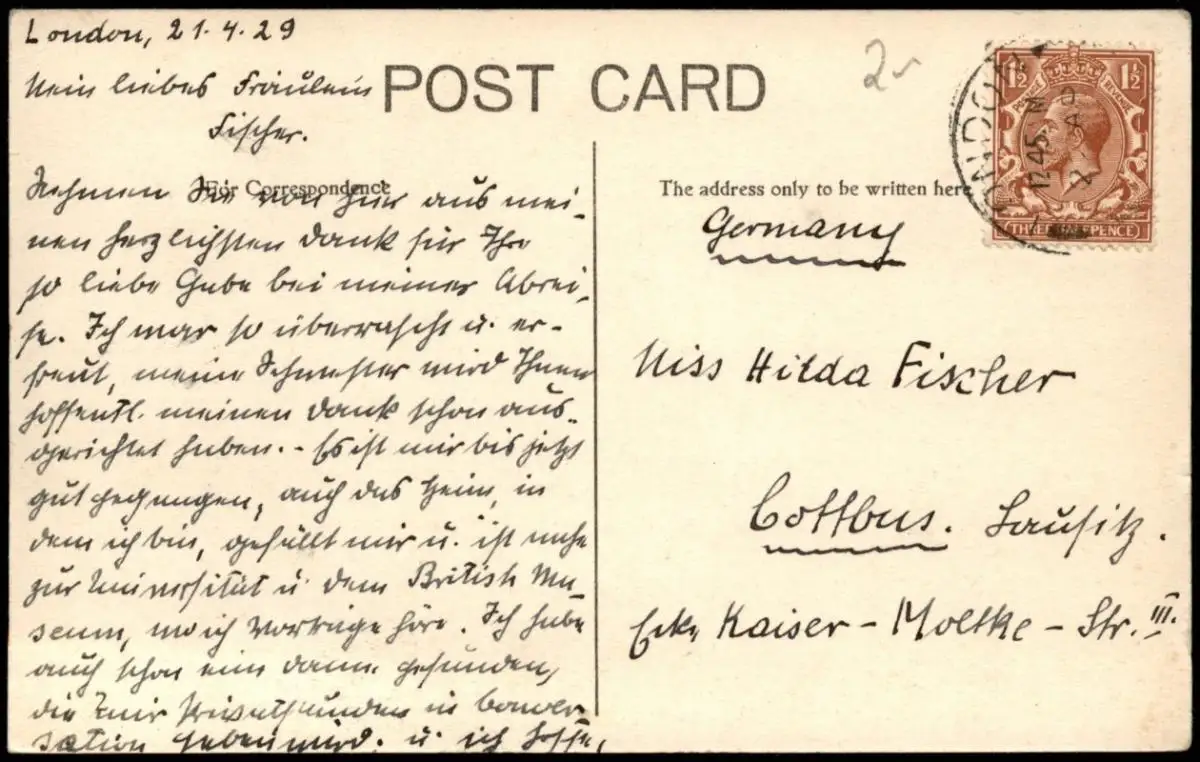 London, 21.4.29
Mein liebes Fräulein
Fischer.
POST CARD
2
For Correspondence
Nehmen Sie von hier aus mei-
nen herzlichsten Dank für Ihre
so liebe Gabe bei meiner Abrei-
se. Ich war so überrascht u. er-
freut, meine Schwester wird Ihnen
hoffentl. meinen Dank schon aus-
gerichtet haben. - Es ist mir bis jetzt
gut gegangen, auch das Heim, in
dem ich bin, gefällt mir u. ist nahe
zur Universität u. dem British Mu-
seum, wo ich Vorträge höre. Ich habe
auch schon eine Dame gefunden,
die mir Privatstunden in Conver-
sation geben wird. u. ich hoffe,
The address only to be written here
LONDON
12.45
1½ 1½
POSTAGE REVENUE
THREE HALFPENCE
Germany
Miss Hilda Fischer
Cottbus. Lausitz.
Ecke Kaiser - Moltke - Str. III.